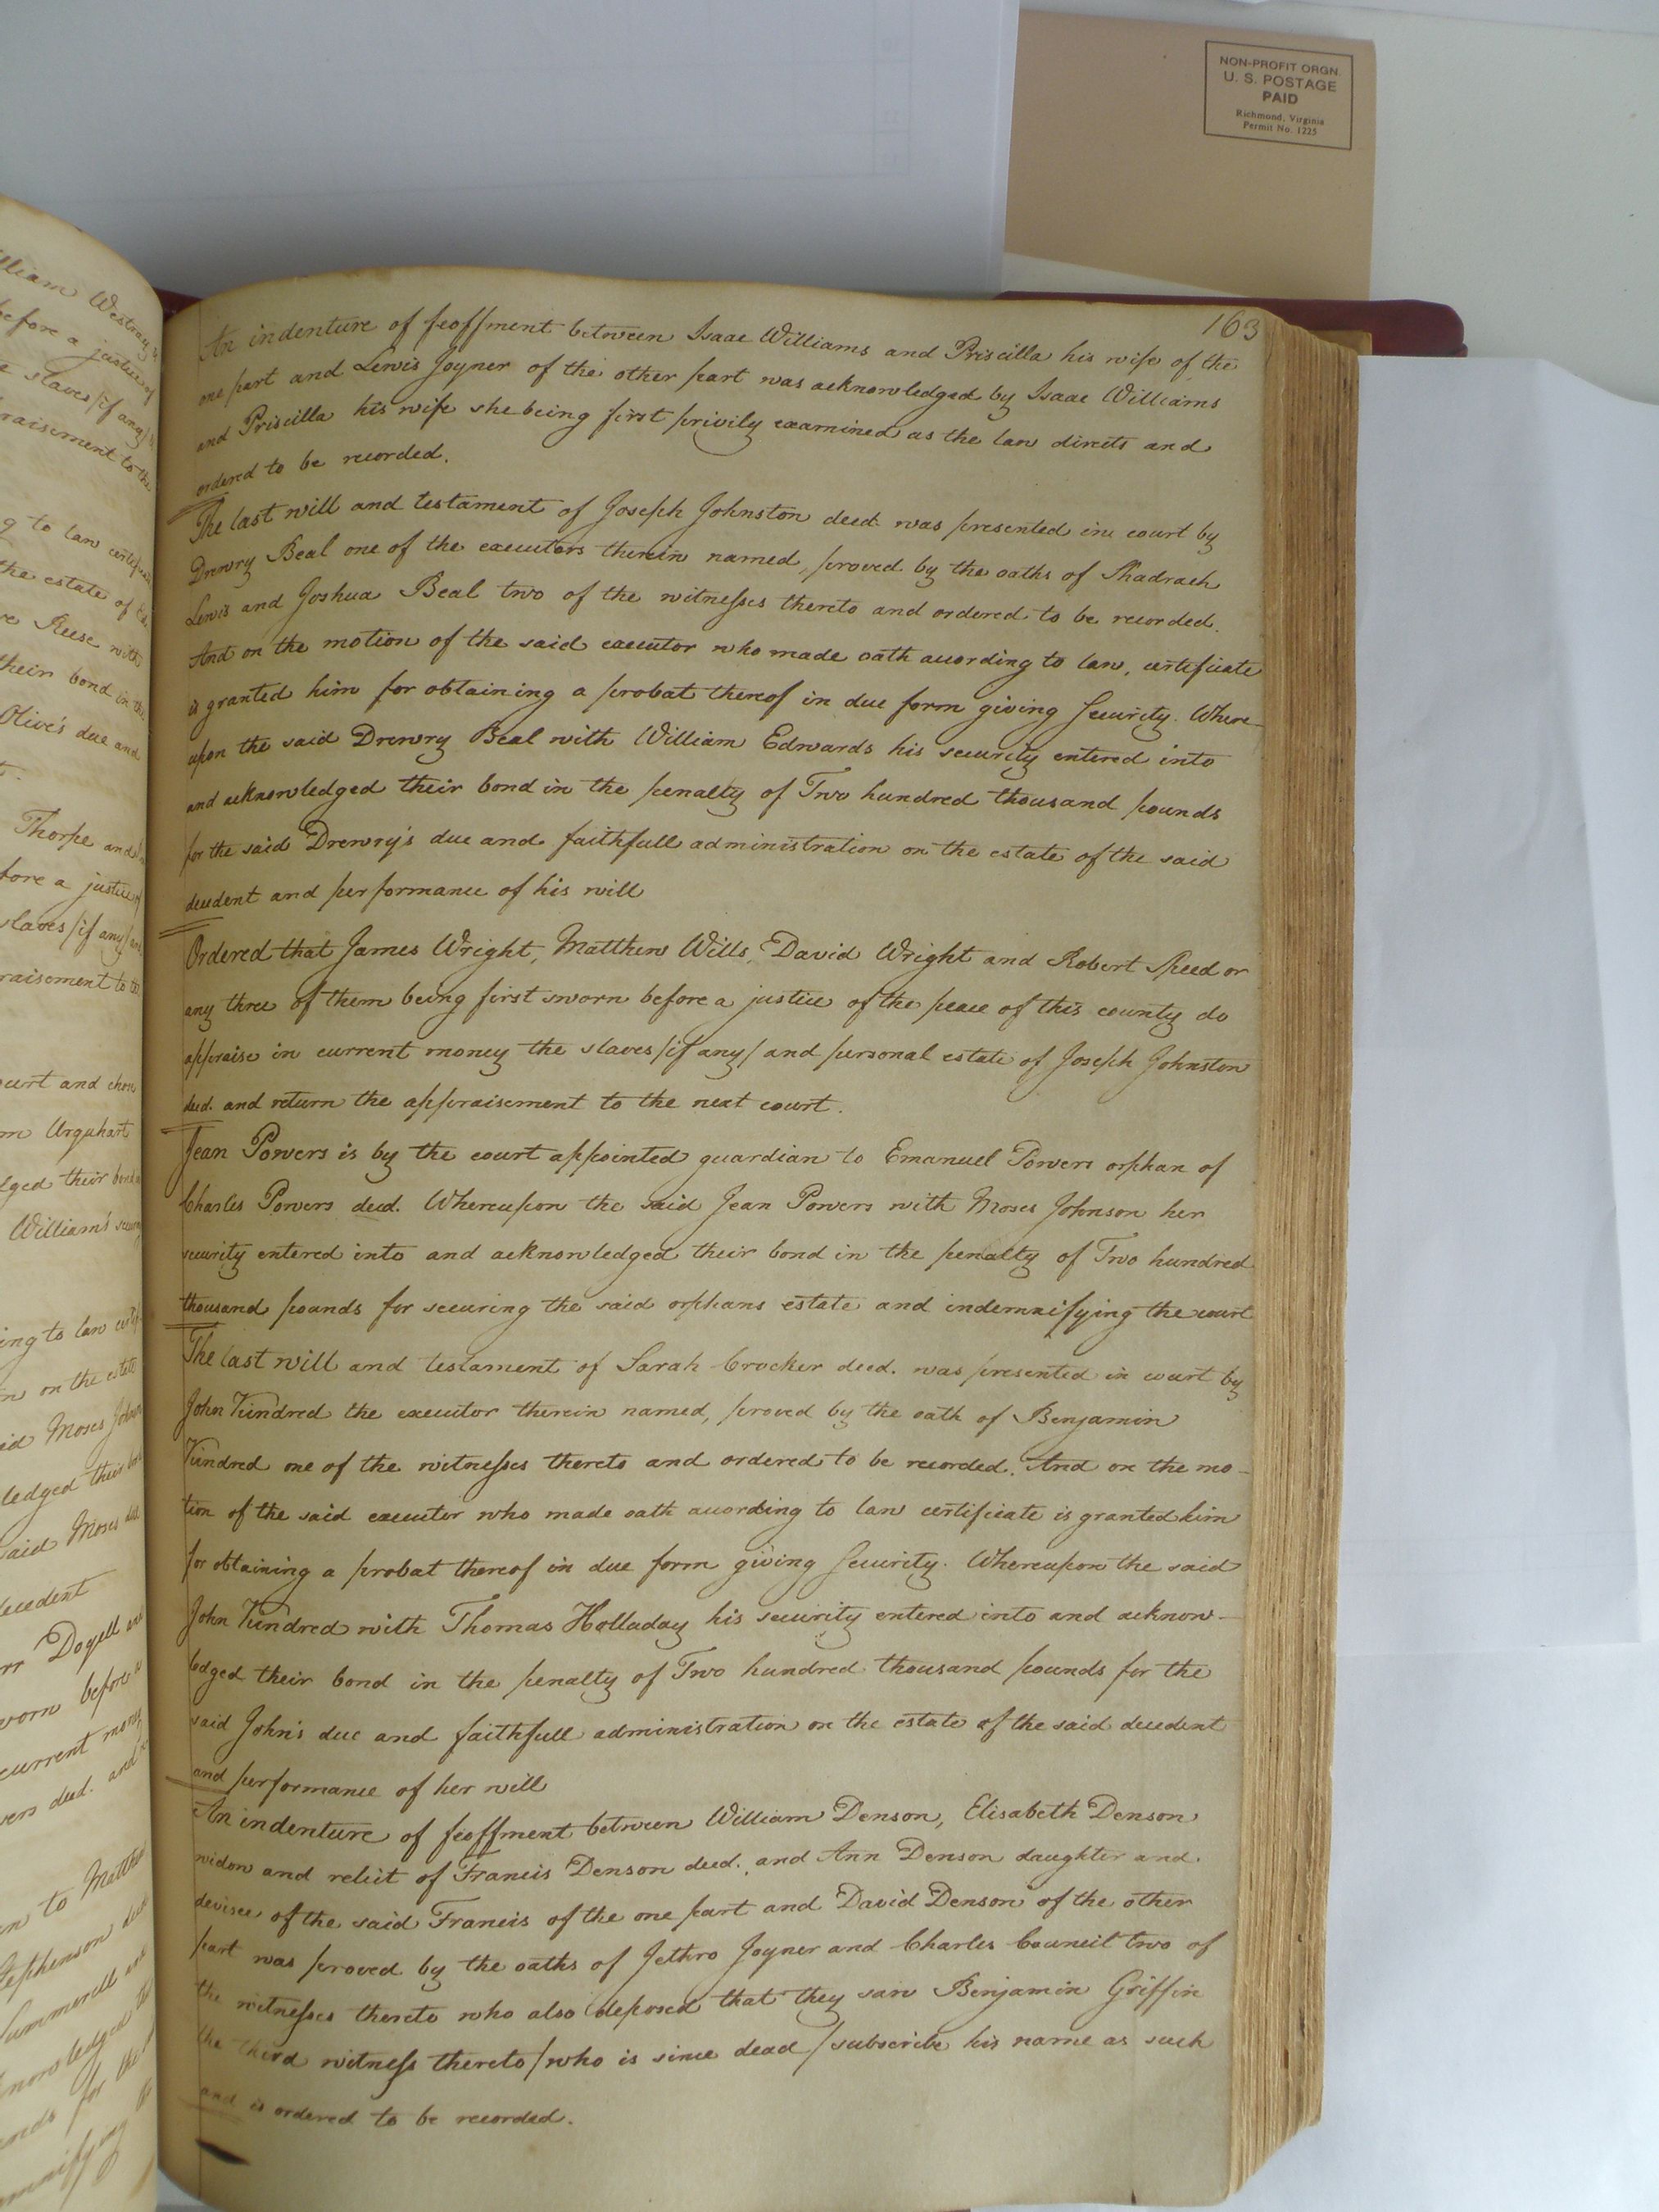 NON-PROFIT ORGN.
U. S. POSTAGE
PAID
Richmond, Virginia
Permit No. 1225
lliam Westray
before a justice of
e slaves /if any/
raisement to the
g to law certificate
the estate of
re Reese with
their bond in the
Olive's due and
Thorpe and
fore a justice of
slaves /if any/
raisement to
ourt and
m Urquhart
dged their bond
William's
ing to law
n on the estate
id Moses
ledged their
said Moses
decedent
rr Dogell
worn before
current money
vers decd. and
on to Matthew
Stephenson
Summerell
nowledged
unds for the
emnifying
163
An indenture of feoffment between Isaac Williams and Priscilla his wife of the
one part and Lewis Joyner of the other part was acknowledged by Isaac Williams
and Priscilla his wife she being first privily examined as the law directs and
ordered to be recorded.
The last will and testament of Joseph Johnston decd. was presented in court by
Drewry Beal one of the executors therein named, proved by the oaths of Shadrach
Lewis and Joshua Beal two of the witnesses thereto and ordered to be recorded.
And on the motion of the said executor who made oath according to law, certificate
is granted him for obtaining a probat thereof in due form giving Security. Where-
upon the said Drewry Beal with William Edwards his security entered into
and acknowledged their bond in the penalty of Two hundred thousand pounds
for the said Drewry's due and faithfull administration on the estate of the said
decedent and performance of his will
Ordered that James Wright, Matthew Wills, David Wright and Robert Speed or
any three of them being first sworn before a justice of the peace of this county do
appraise in current money the slaves /if any/ and personal estate of Joseph Johnston
decd. and return the appraisement to the next court.
Jean Powers is by the court appointed guardian to Emanuel Powers orphan of
Charles Powers decd. Whereupon the said Jean Powers with Moses Johnson her
security entered into and acknowledged their bond in the penalty of Two hundred
thousand pounds for securing the said orphans estate and indemnifying the court
The last will and testament of Sarah Crocker decd. was presented in court by
John Kindred the executor therein named, proved by the oath of Benjamin
Kindred one of the witnesses thereto and ordered to be recorded. And on the mo-
tion of the said executor who made oath according to law certificate is granted him
for obtaining a probat thereof in due form giving Security. Whereupon the said
John Kindred with Thomas Holladay his security entered into and acknow-
ledged their bond in the penalty of Two hundred thousand pounds for the
said John's due and faithfull administration on the estate of the said decedent
and performance of her will
An indenture of feoffment between William Denson, Elisabeth Denson
widow and relict of Francis Denson decd. and Ann Denson daughter and
devisee of the said Francis of the one part and David Denson of the other
part was proved by the oaths of Jethro Joyner and Charles Council two of
the witnesses thereto who also deposed that they saw Benjamin Griffin
the third witness thereto /who is since dead/ subscribe his name as such
and is ordered to be recorded.